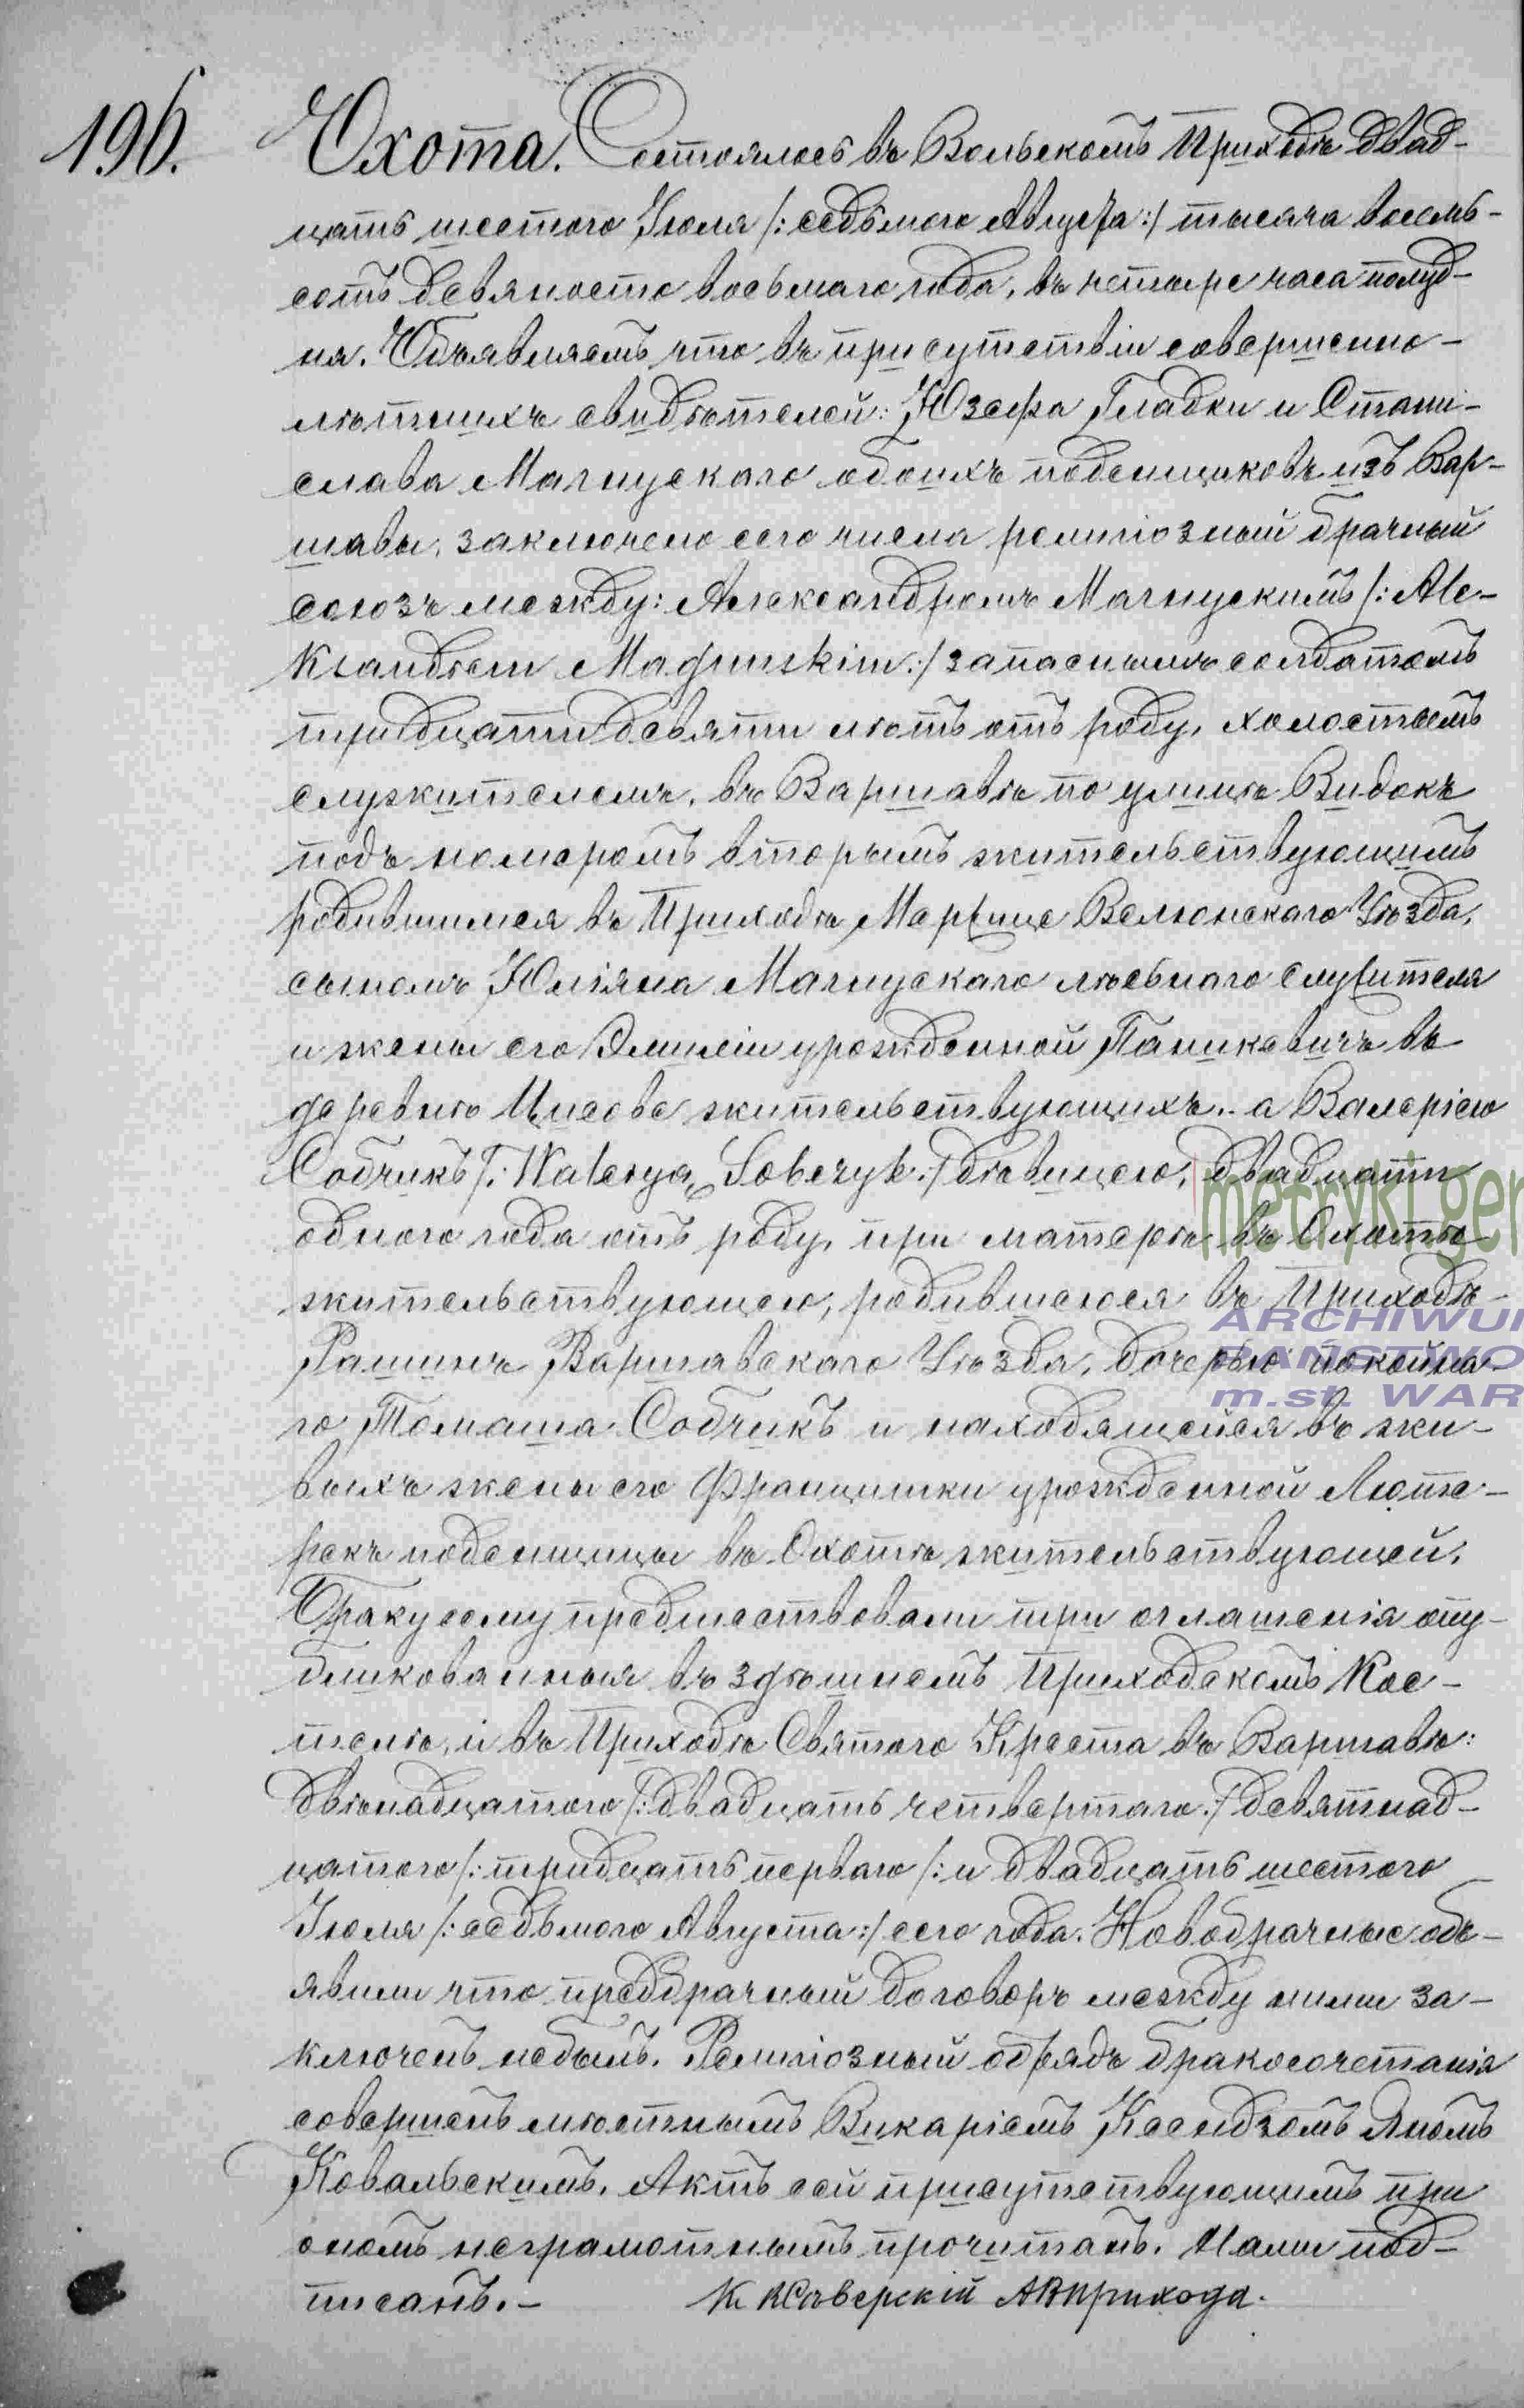 196.
Охота. Состоялось въ Вольскомъ Приходѣ двад-
цать шестого Іюля /: седьмого Августа :/ тысяча восемь-
сотъ девяносто восьмаго года, въ четыре часа полуд-
ня. Объявляемъ что въ присутствіи совершенно-
лѣтнихъ свидѣтелей: Юзефа Гладки и Стани-
слава Магнускаго обоихъ поденщиковъ изъ Вар-
шавы, заключено сего числа религіозный брачный
союзъ между: Александромъ Магнускимъ /: Ale-
ksandrem Magnuskim :/ запаснымъ солдатомъ
тридцати девяти лѣтъ отъ роду, холостымъ
служителемъ, въ Варшавѣ по улицѣ Видокъ
подъ номеромъ вторымъ жительствующимъ
родившимся въ Приходѣ Велюнскаго Уѣзда,
сыномъ Юліяна Магнускаго лѣсьнаго служителя
и жены его Эмиліи урожденной Паникевичъ въ
деревнѣ Цисова жительствующихъ.. а Валеріею
Собчикъ /: Waleryą Sobczyk :/ дѣвицею, двадцати
одного года отъ роду, при матерѣ въ Охотѣ
жительствующею, родившеюся въ Приходѣ
Рашинъ Варшавскаго Уѣзда, дочерью покойна-
го Томаша Собчикъ и находящейся въ жи-
выхъ жены его Францишки урожденной Люте-
рекъ поденщицы въ Охотѣ жительствующей.
Браку сему предшествовали три оглашенія опу-
бликованныя въ здѣшнемъ Приходскомъ Кос-
телѣ, и въ Приходѣ Святого Креста въ Варшавѣ:
двѣнадцатого /: двадцать четвертаго :/ девятнад-
цатого /: тридцать перваго /: и двадцать шестого
Іюля /: седьмого Августа :/ сего года. Новобрачные объ-
явили что предбрачный договоръ между ними за-
ключенъ небылъ. Религіозный обрядъ бракосочетанія
совершенъ мѣстнымъ Викаріемъ Ксендзомъ Яномъ
Ковальскимъ. Актъ сей присутствующимъ при
ономъ неграмотнымъ прочитанъ. Нами под-
писанъ.- К. Ксаверскій АВприхода.
metryki.gen
ARCHIWUM
PAŃSTWO
m.st. WAR